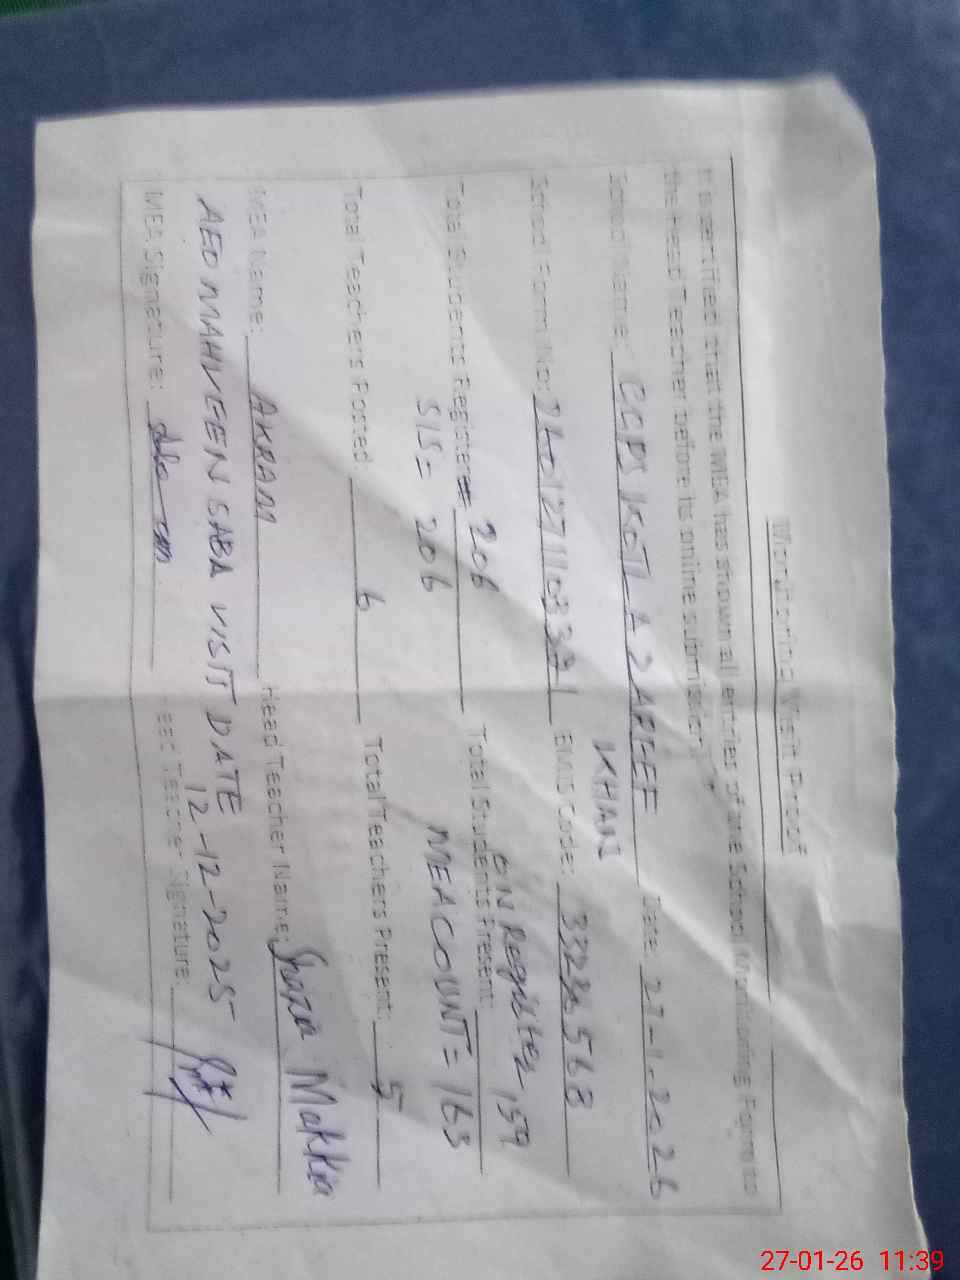 Monitoring Visit Proof
It is certified that the MEA has shown all entries of the School Monitoring Form to
the Head Teacher before its online submission.
School Name: GGPS KOTLA ZAREEF Date: 27-1-2026
KHAN
School Form No: EMIS Code:
ON Register, 159
Total Students Register= 206 Total Students Present:
SIS= 206 MEA COUNT= 163
Total Teachers Posted: 6 Total Teachers Present: 5
MEA Name: AKRAM Head Teacher Name: Makkia
AEO MAHVEEN SABA VISIT DATE 12-12-2025
MEA Signature: Head Teacher Signature:
27-01-26 11:39